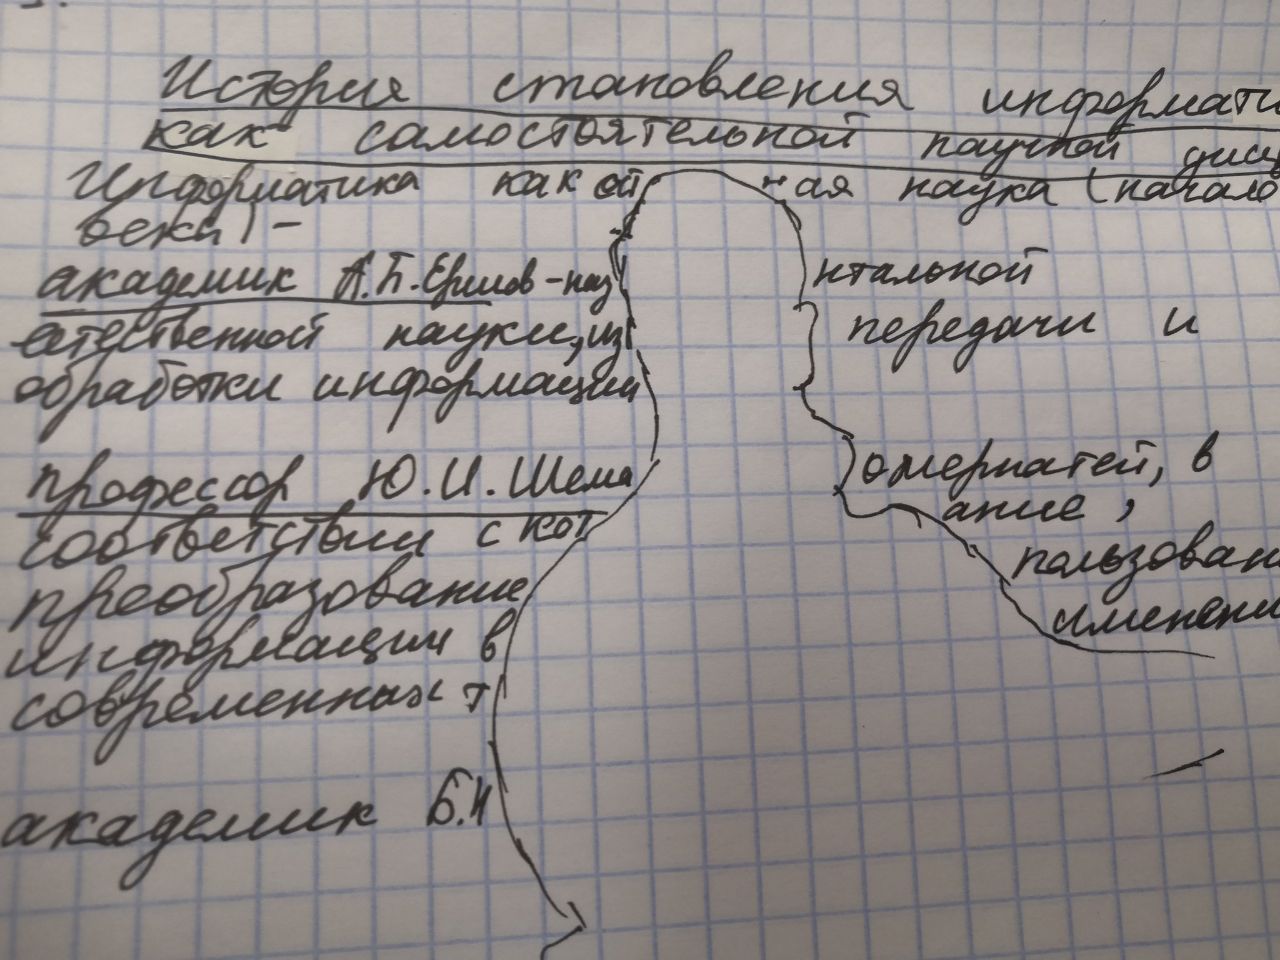 История становления информати
как самостоятельной научной дисц
Информатика как от ная наука (начало
века) -
академик А.П.Ершов - наз нтальной
естественной науки, из передачи и
обработки информации
профессор Ю.И.Шема омернатей, в
соответствии с кот ание,
преобразование пользован
информации в именени
современных т
академик Б.Н